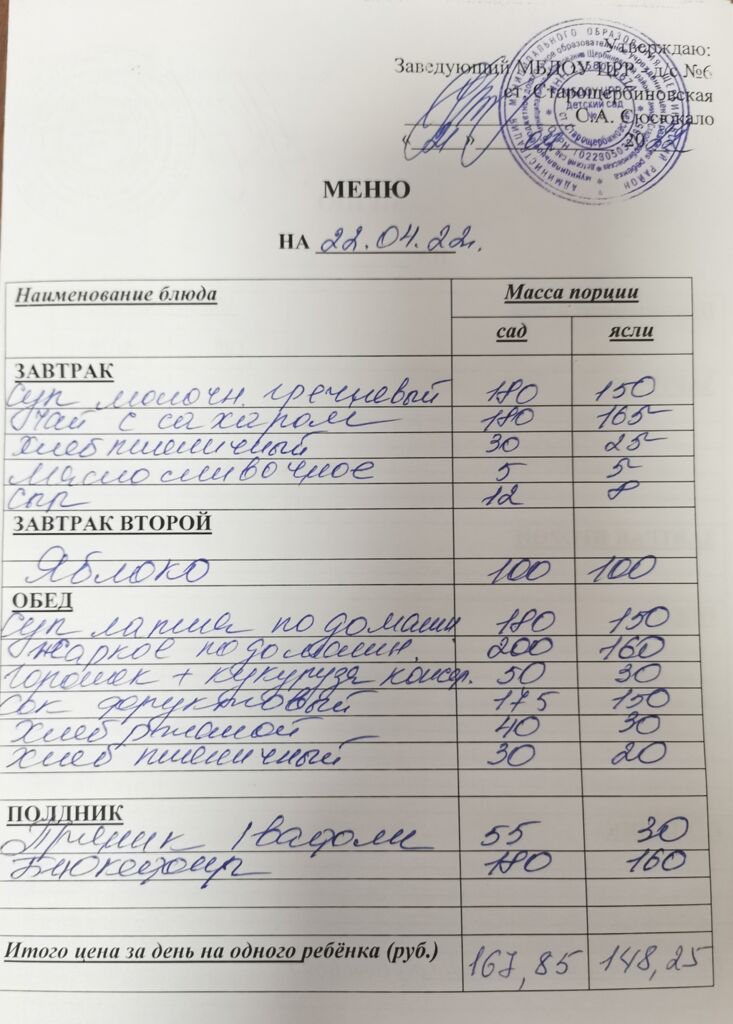 Утверждаю:
Заведующий МБДОУ ЦРР д/с №6
ст. Старощербиновская
С.А. Сюсюкало
« 21 » 04 2022
МЕНЮ
НА 22.04.22г.
Наименование блюда Масса порции
сад ясли
ЗАВТРАК
Суп молочн. гречневый 180 150
Чай с сахаром 180 165
Хлеб пшеничный 30 25
Масло сливочное 5 5
Сыр 12 8
ЗАВТРАК ВТОРОЙ
Яблоко 100 100
ОБЕД
Суп лапша по домашн 180 150
Жаркое по домашн. 200 160
Горошек + кукуруза консер. 50 30
Сок фруктовый 175 150
Хлеб ржаной 40 30
Хлеб пшеничный 30 20
ПОЛДНИК
Пряник / вафли 55 30
Биокефир 180 160
Итого цена за день на одного ребёнка (руб.) 167,85 148,25